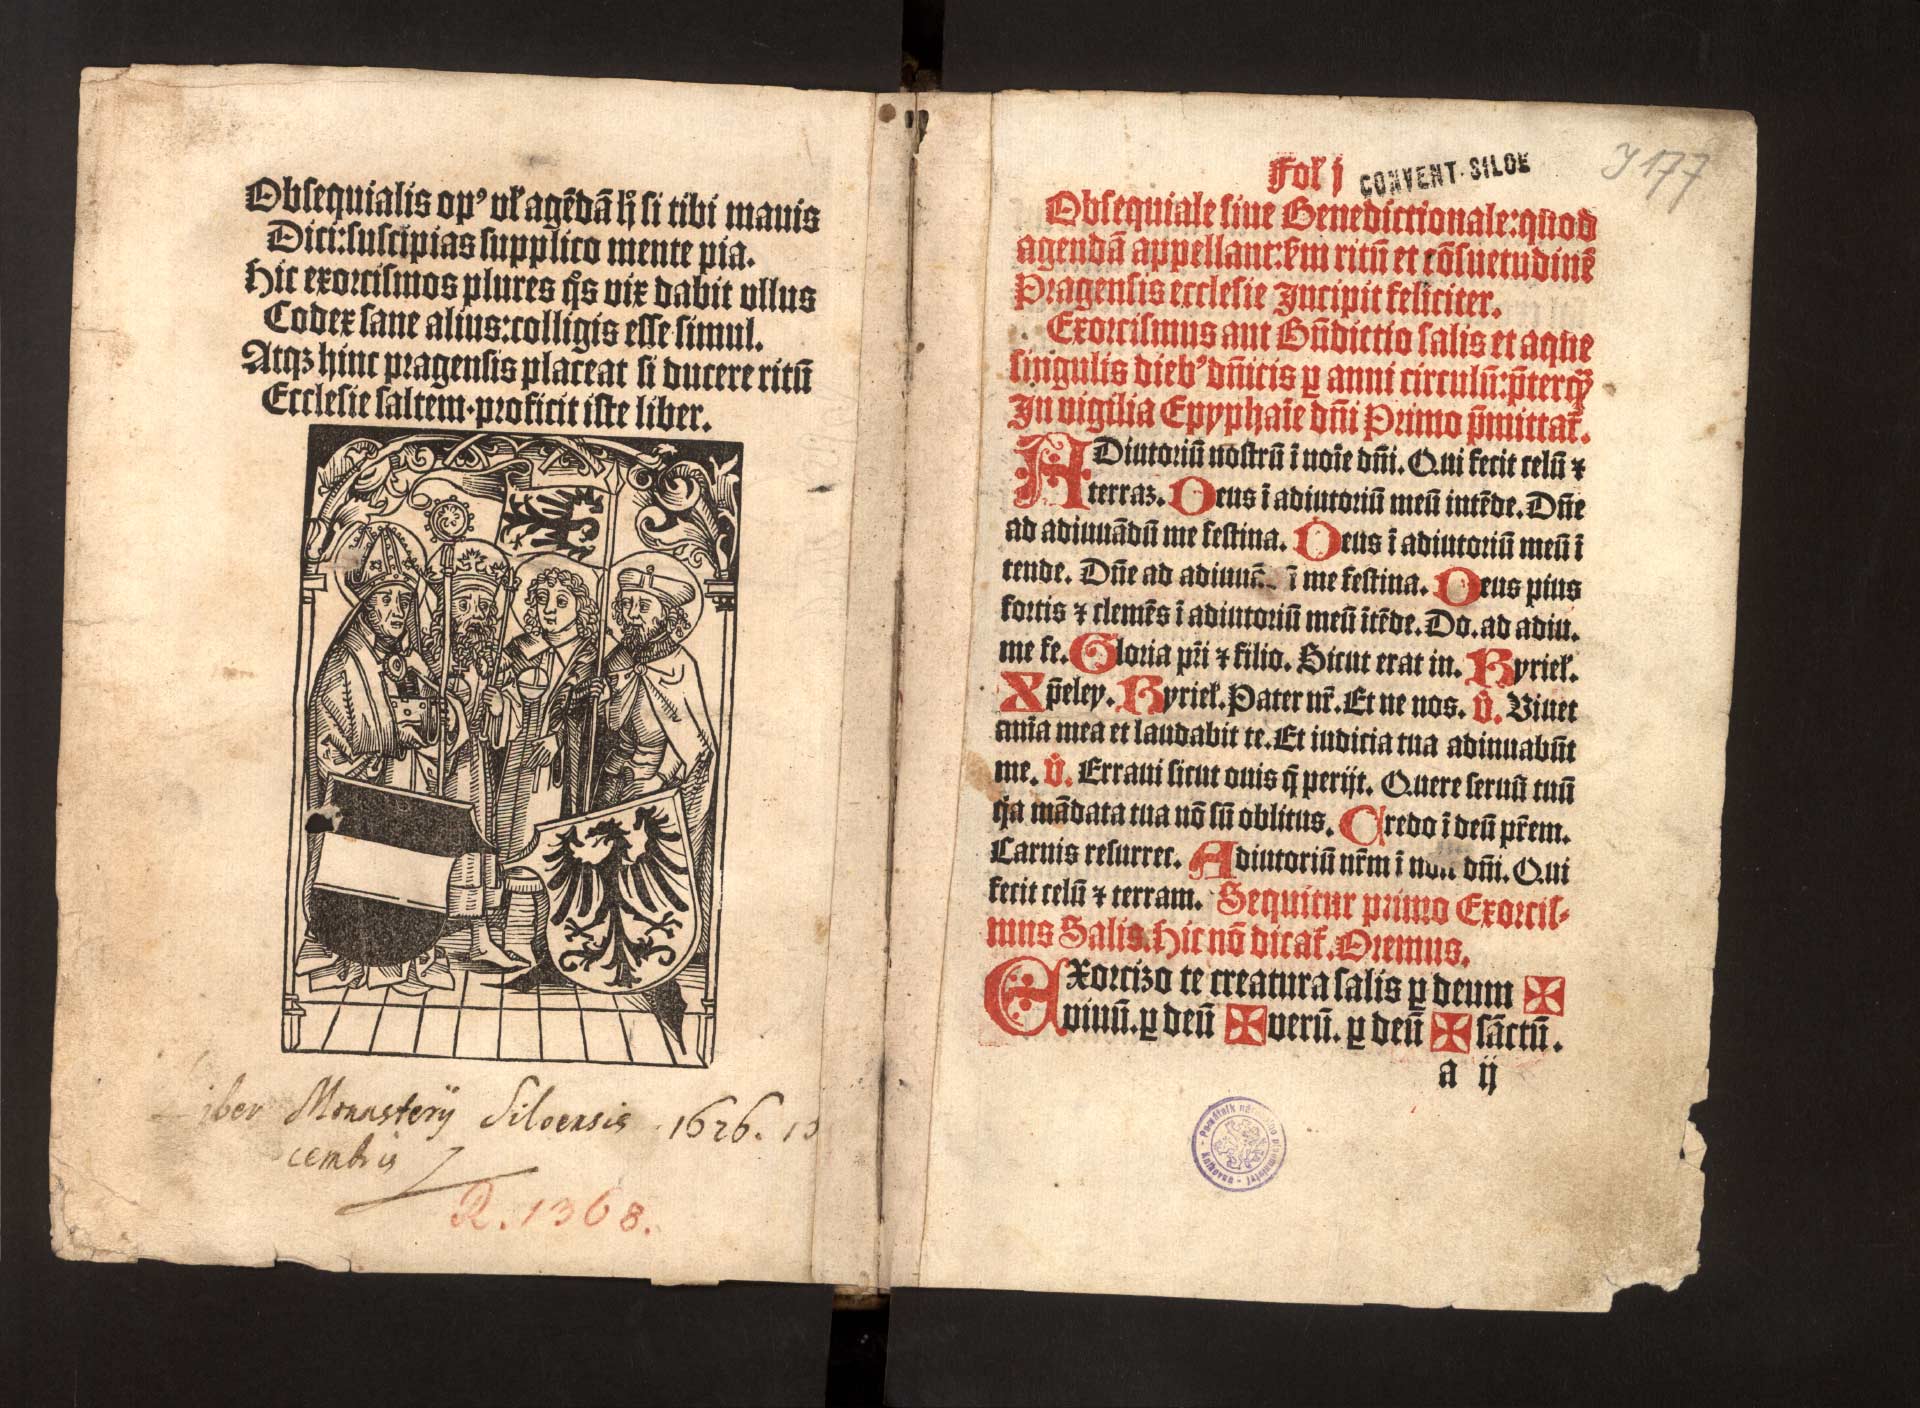 Obsequialis opꝰ vl̕ agēdā hͦ si tibi mauis
Dici: suscipias supplico mente pia.
Hic exorcismos plures q̄s vix dabit vllus
Codex sane alius: colligis esse simul.
Atqꝫ hinc pragensis placeat si ducere ritū
Ecclesie saltem. proficit iste liber.
iber Monasterij Siloensis 1626. 10
cembris
R. 1368.
Fol̕ j
CONVENT. SILOE
J 177
Obsequiale siue Benedictionale: quod
agendā appellant: s̄m ritū et cōsuetudinē
Pragensis ecclesie Incipit feliciter.
Exorcismus aut Bn̄dictio salis et aque
singulis diebꝰ dn̄icis ꝑ anni circulū: p̄terqꝫ̄
In vigilia Epyphaīe dn̄i Primo p̄mittat̕.
ADiutoriū nostrū ī noīe dn̄i. Qui fecit celū ⁊
terraꝫ. Deus ī adiutoriū meū intēde. Dn̄e
ad adiuuādū me festina. Deus ī adiutoriū meū ī
tende. Dn̄e ad adiuuā ī me festina. Deus pius
fortis ⁊ clemēs ī adiutoriū meū ītēde. Do. ad adiu.
me fe. Gloria pr̄i ⁊ filio. Sicut erat in. Kyriel̕.
Xp̄eley. Kyriel̕. Pater nr̄. Et ne nos. V̊. Viuet
anīa mea et laudabit te. Et iudicia tua adiuuabūt
me. V̊. Erraui sicut ouis q̄ perijt. Quere seruū tuū
q̇a mādata tua nō sū oblitus. Credo ī deū pr̄em.
Carnis resurrec. Adiutoriū nr̄m ī dn̄i. Qui
fecit celū ⁊ terram. Sequitur primo Exorcis-
mus Salis. Hic nō dicat̕. Oremus.
EXorcizo te creatura salis ꝑ deum ✠
viuū. ꝑ deū ✠ verū. ꝑ deū ✠ sāctū.
a ij
Památník národního písemnictví - knihovna -